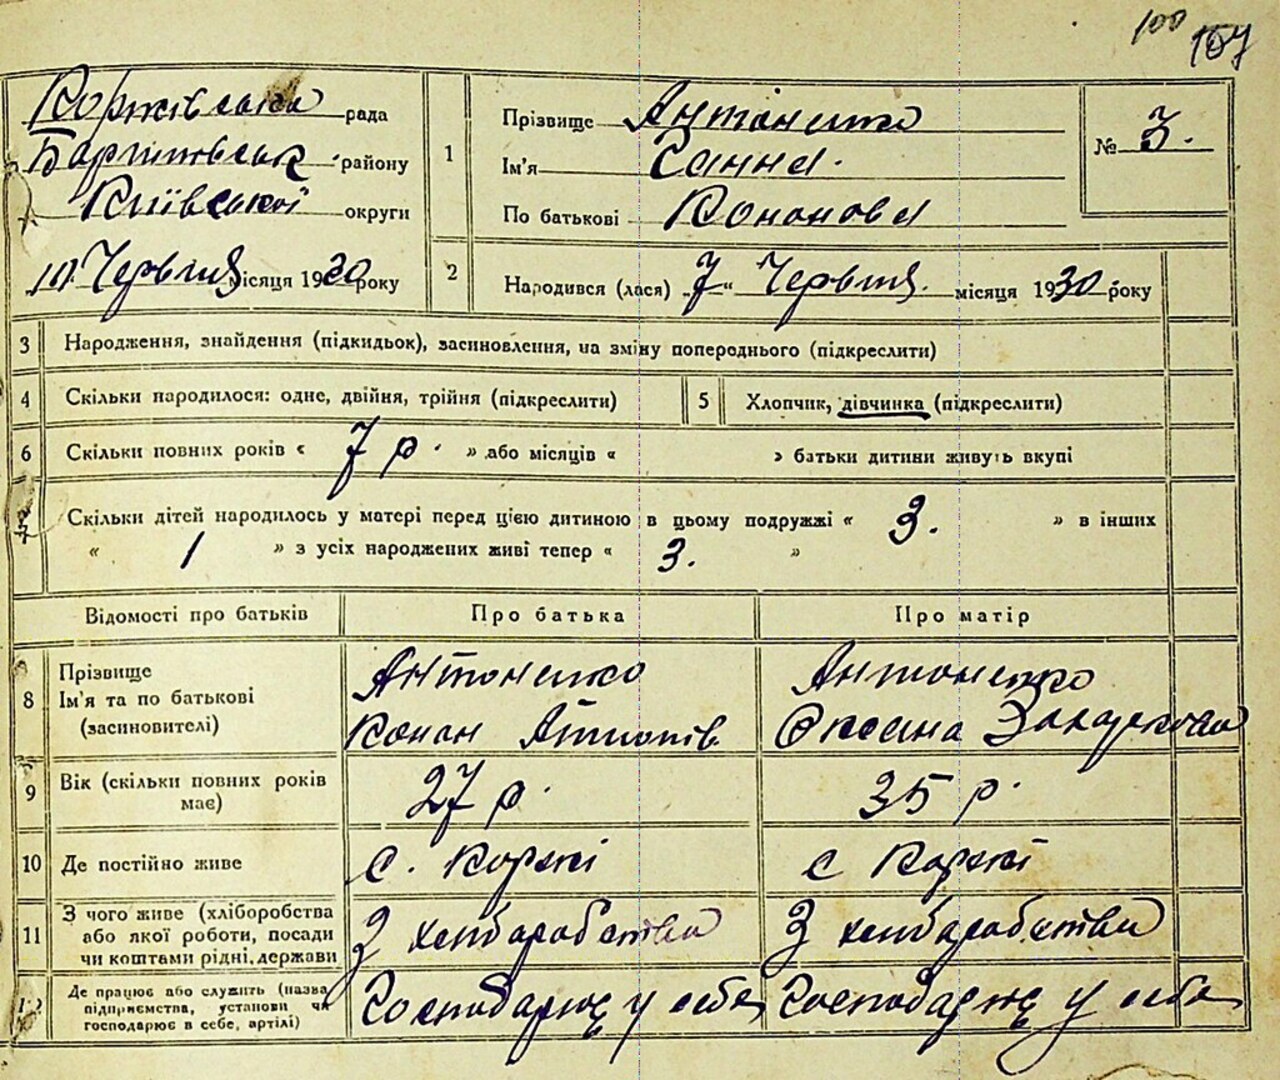 100 107
Коржівська рада
Баришівськ району
Київської округи
10 Червця місяця 1930 року
1
Прізвище Антоненко
Ім'я Ганна
По батькові Кононова
№ 3.
2
Народився (лася) „7“ Червця місяця 1930 року
3 Народження, знайдення (підкидьок), засиновлення, на зміну попереднього (підкреслити)
4 Скільки народилося: одне, двійня, трійня (підкреслити)
5 Хлопчик, дівчинка (підкреслити)
6 Скільки повних років « 7 р. » або місяців « » батьки дитини живуть вкупі
7 Скільки дітей народилось у матері перед цією дитиною в цьому подружжі « 3. » в інших
« 1 » з усіх народжених живі тепер « 3. »
Відомості про батьків Про батька Про матір
8
Прізвище
Ім'я та по батькові
(засиновителі)
Антоненко
Конан
Антоненко
Оксана Захарківна
9
Вік (скільки повних років
має)
27 р.
35 р.
10 Де постійно живе
с. Коржі
с Коржі
11
З чого живе (хліборобства
або якої роботи, посади
чи коштами рідні, держави
З хліборобства
З хліборобства
12
Де працює або служить (назва
підприємства, установи чи
господарює в себе, артілі)
Господарює у себе
Господарює у себе